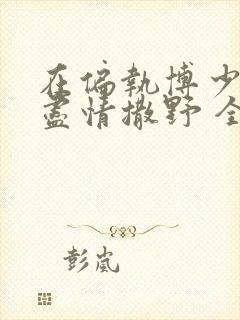 在偏執博少
盡情撒野 全
彭嵐